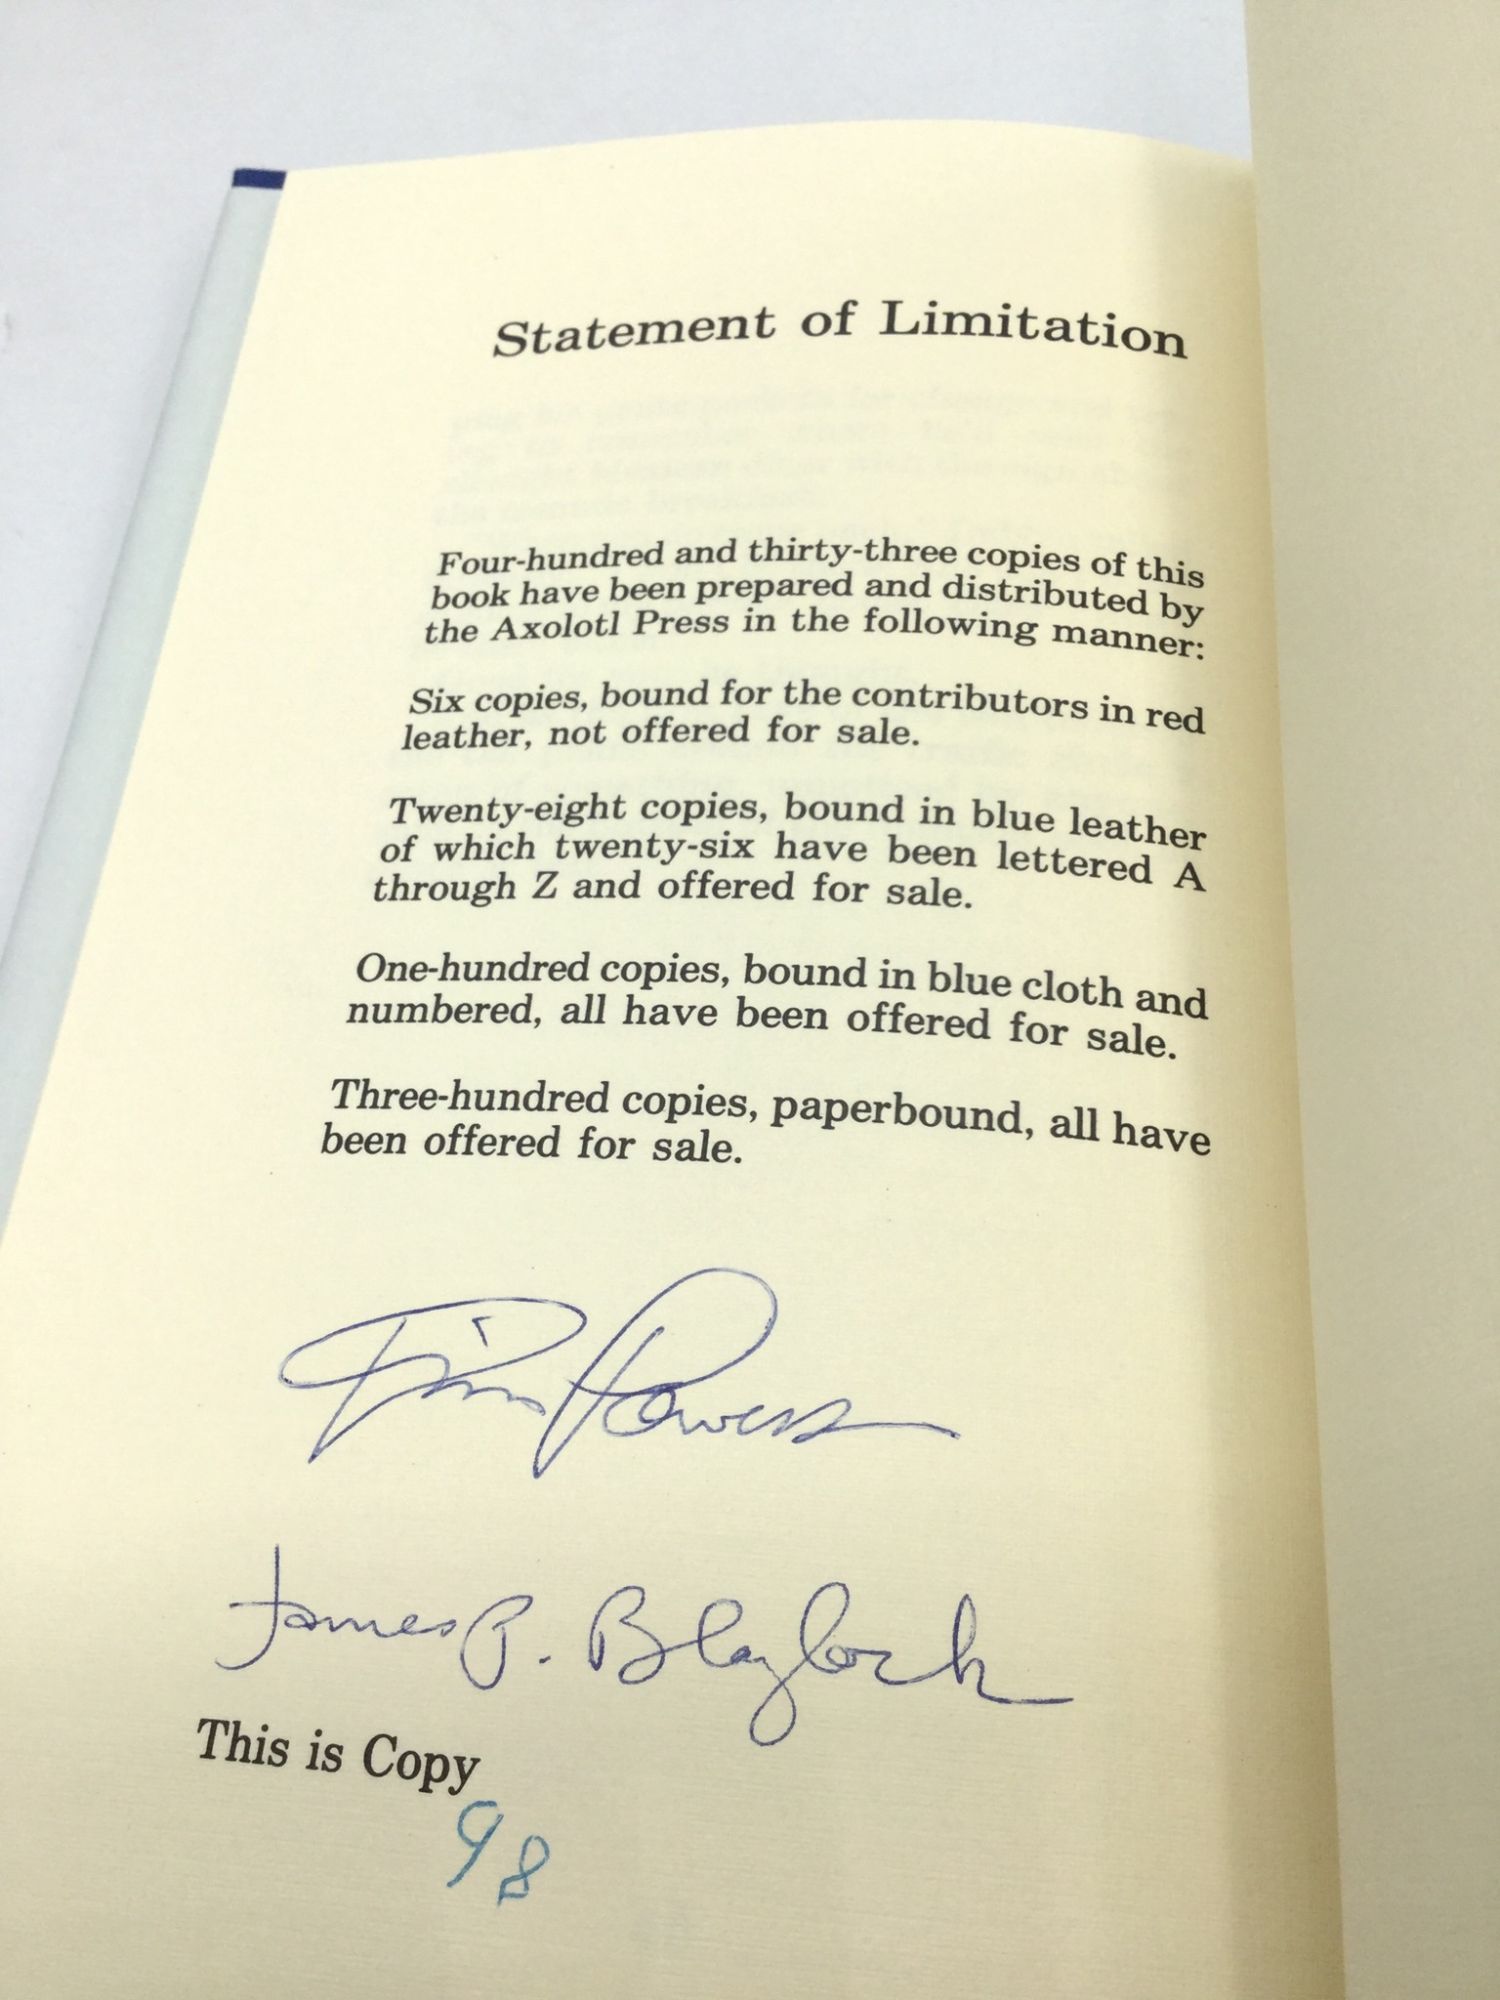 Statement of Limitation
Four-hundred and thirty-three copies of this
book have been prepared and distributed by
the Axolotl Press in the following manner:
Six copies, bound for the contributors in red
leather, not offered for sale.
Twenty-eight copies, bound in blue leather
of which twenty-six have been lettered A
through Z and offered for sale.
One-hundred copies, bound in blue cloth and
numbered, all have been offered for sale.
Three-hundred copies, paperbound, all have
been offered for sale.
Tim Powers
James P. Blaylock
This is Copy
98